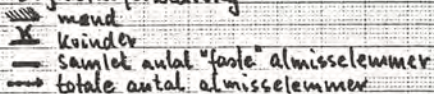 mænd
kvinder
samlet antal "faste" almisselemmer
totale antal almisselemmer